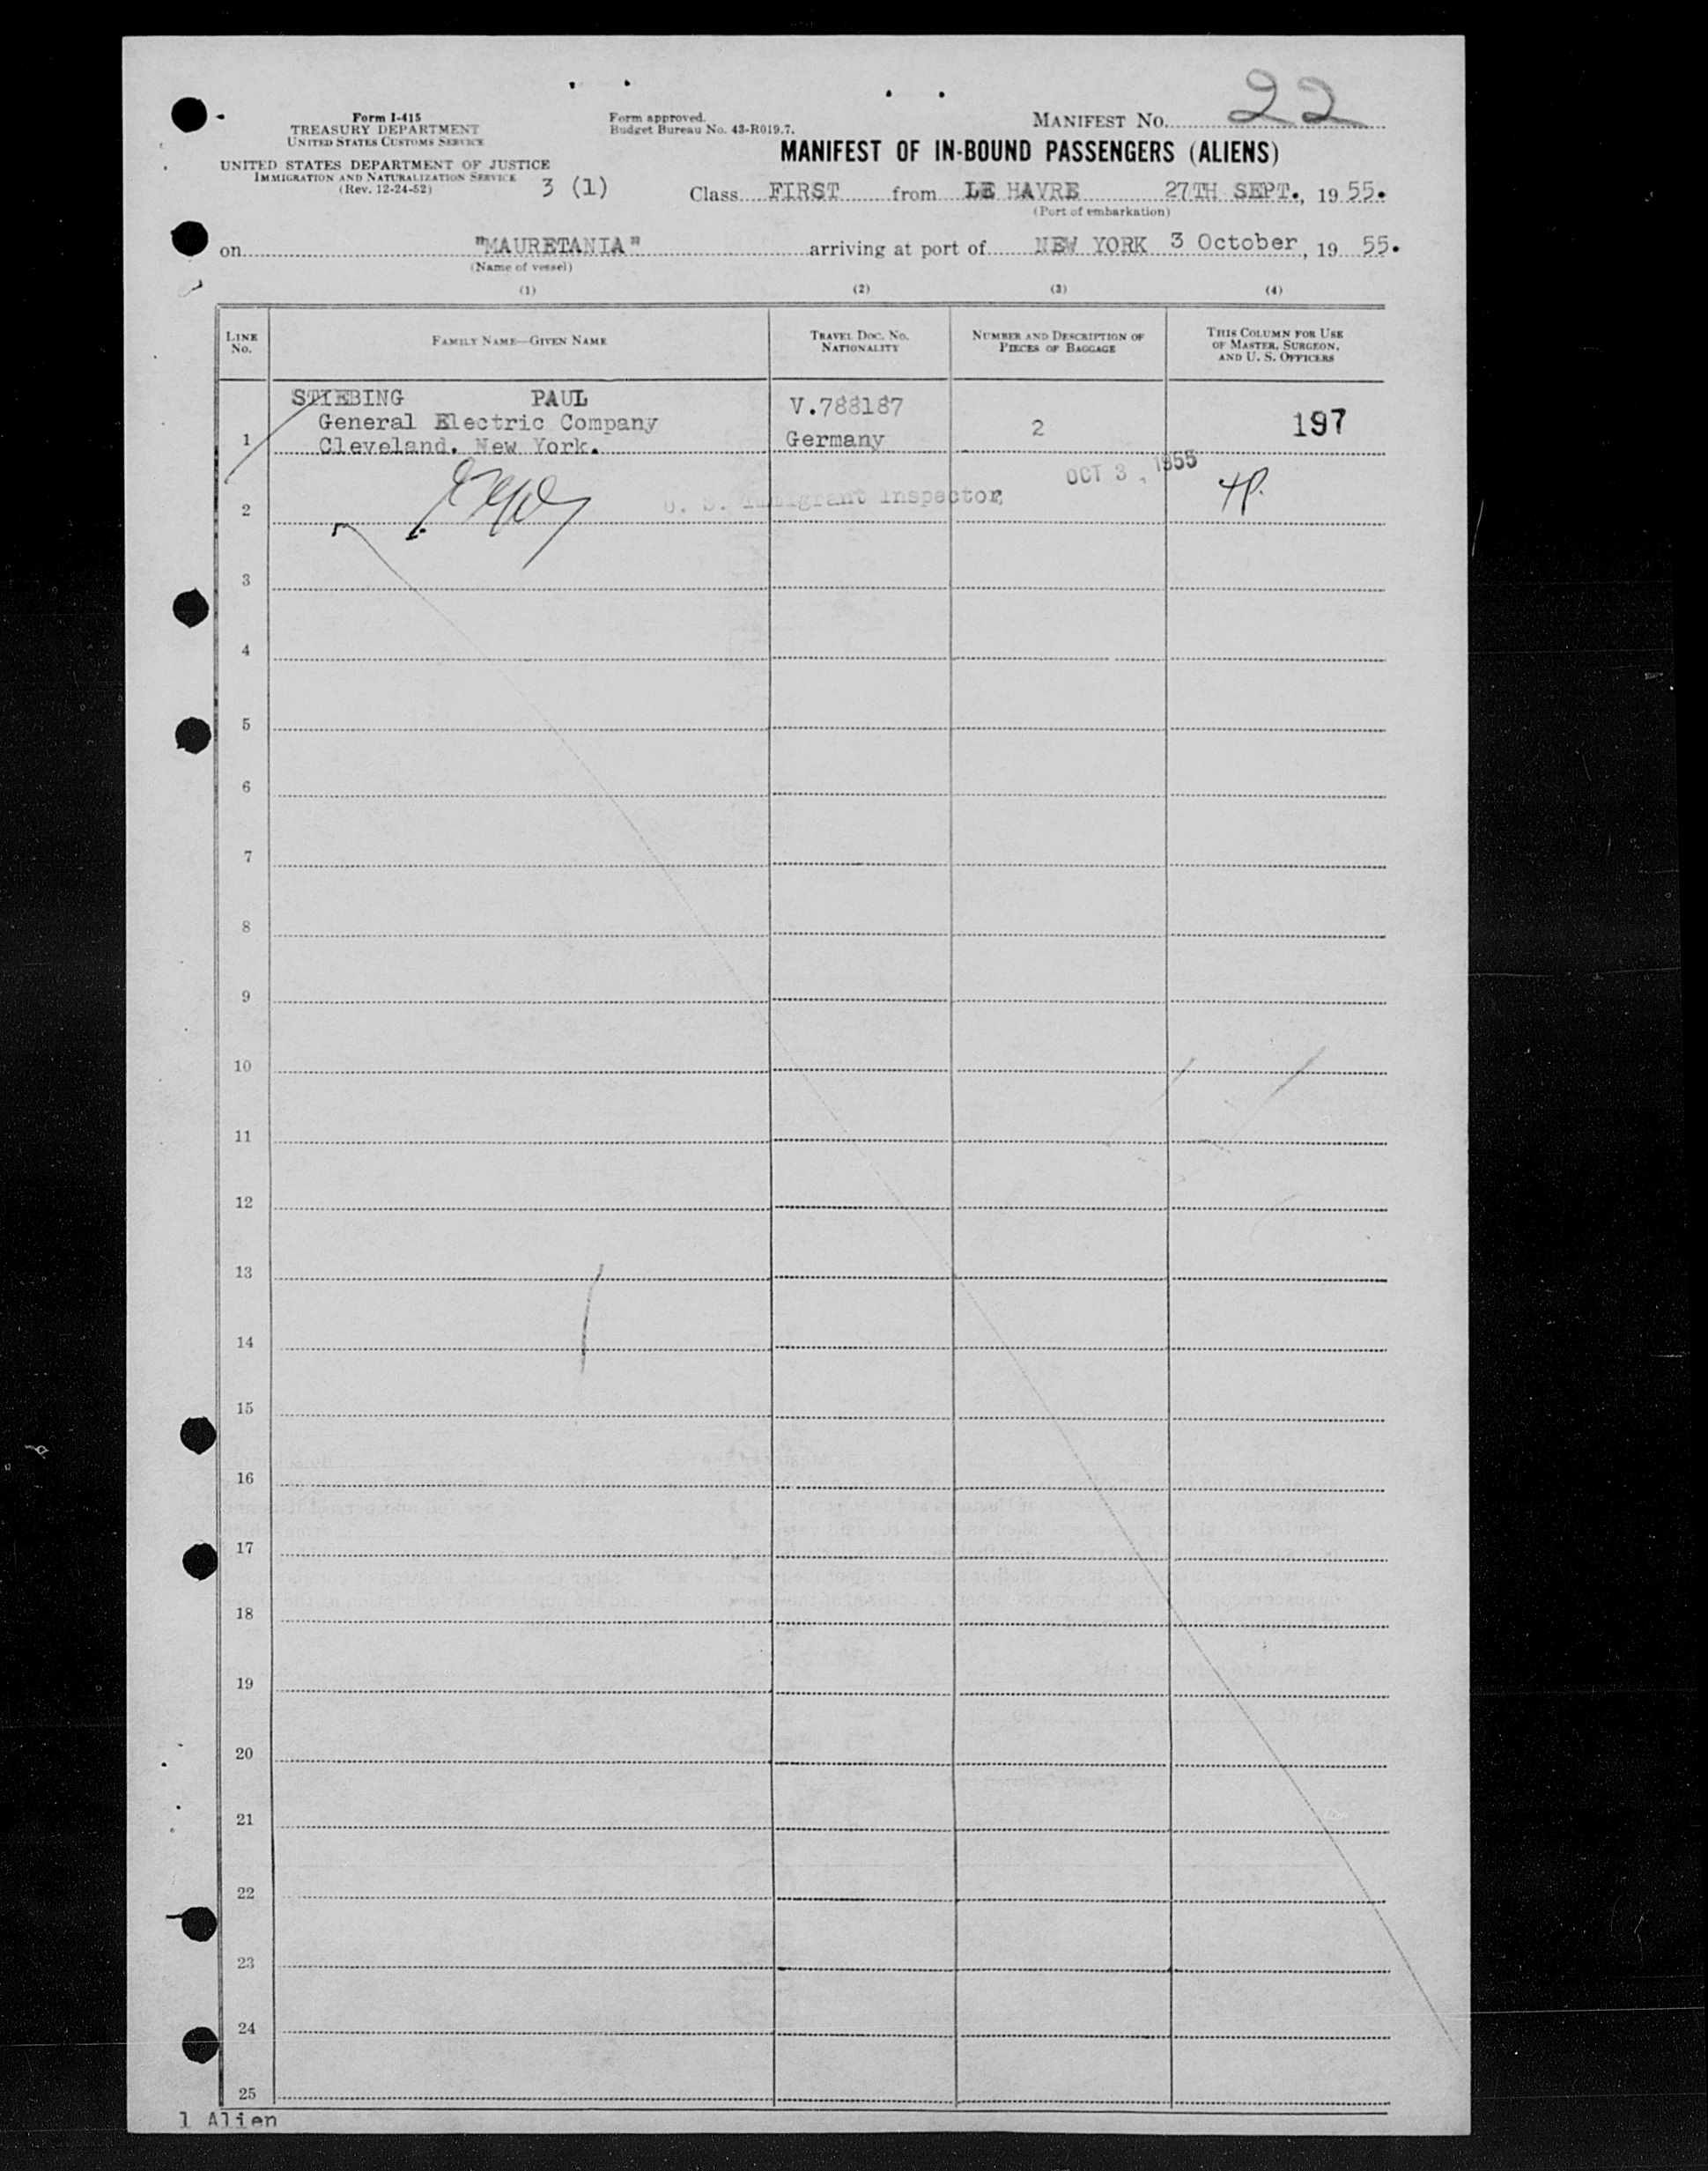 22
Form I-415
TREASURY DEPARTMENT
UNITED STATES CUSTOMS SERVICE
UNITED STATES DEPARTMENT OF JUSTICE
IMMIGRATION AND NATURALIZATION SERVICE
(Rev. 12-24-52)
3 (1)
Form approved.
Budget Bureau No. 43-R019.7.
MANIFEST NO.
MANIFEST OF IN-BOUND PASSENGERS (ALIENS)
Class FIRST from LE HAVRE 27TH SEPT., 19 55.
(Port of embarkation)
on "MAURETANIA" arriving at port of NEW YORK 3 October, 19 55.
(Name of vessel)
(1) (2) (3) (4)
LINE No. FAMILY NAME—GIVEN NAME TRAVEL DOC. NO. NATIONALITY NUMBER AND DESCRIPTION OF PIECES OF BAGGAGE THIS COLUMN FOR USE OF MASTER, SURGEON, AND U. S. OFFICERS
STIEBING PAUL V.788187
General Electric Company 2 197
1 Cleveland. New York. Germany
OCT 3, 1955
2 U. S. Immigrant Inspector
3
4
5
6
7
8
9
10
11
12
13
14
15
16
17
18
19
20
21
22
23
24
25
1 Alien